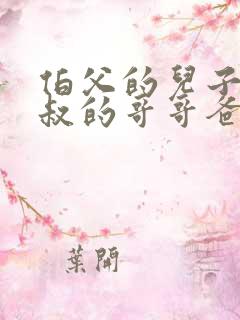 伯父的兒子
叔的哥哥爸
葉開